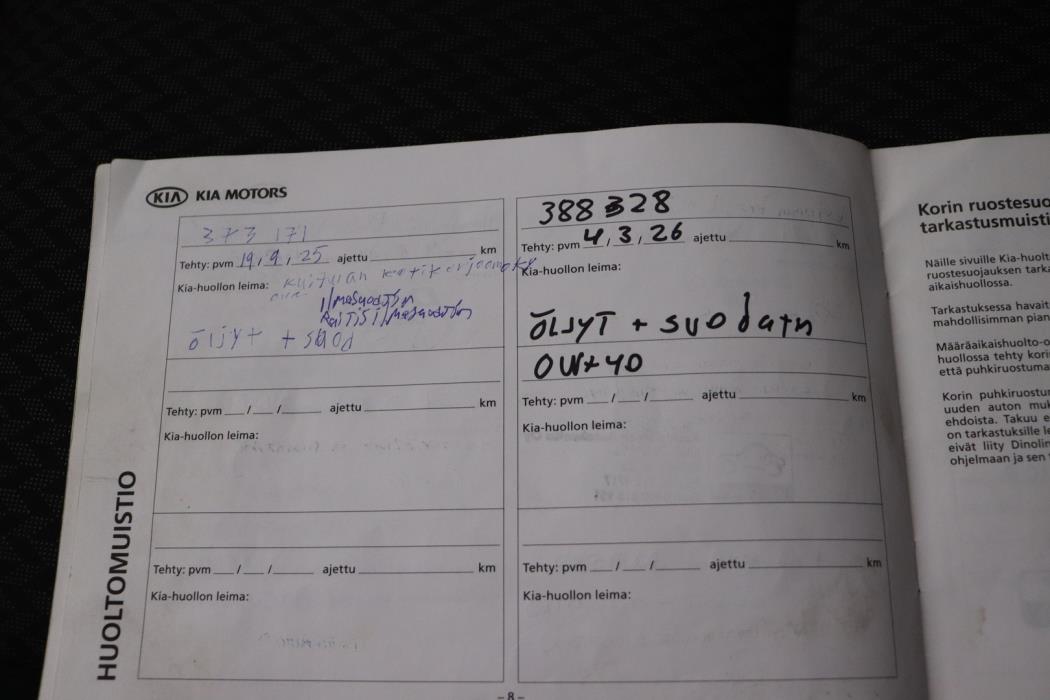 KIA KIA MOTORS
373 171
Tehty: pvm 19, 9, 25 ajettu km
Kia-huollon leima: kuituan
Ilmasuodatin
Raitisilmasuodatin
ÖljyT + suod
Tehty: pvm / / ajettu km
Kia-huollon leima:
Tehty: pvm / / ajettu km
Kia-huollon leima:
388 328
Tehty: pvm 4, 3, 26 ajettu km
Kia-huollon leima:
ÖLJYT + suodatn
0W+40
Tehty: pvm / / ajettu km
Kia-huollon leima:
Tehty: pvm / / ajettu km
Kia-huollon leima:
HUOLTOMUISTIO
– 8 –
Korin ruostesuo
tarkastusmuisti
Näille sivuille Kia-huolt
ruostesuojauksen tarka
aikaishuollossa.
Tarkastuksessa havait
mahdollisimman pian
Määräaikaishuolto-o
huollossa tehty kori
että puhkiruostuma
Korin puhkiruostur
uuden auton muk
ehdoista. Takuu e
on tarkastuksille le
eivät liity Dinolin
ohjelmaan ja sen